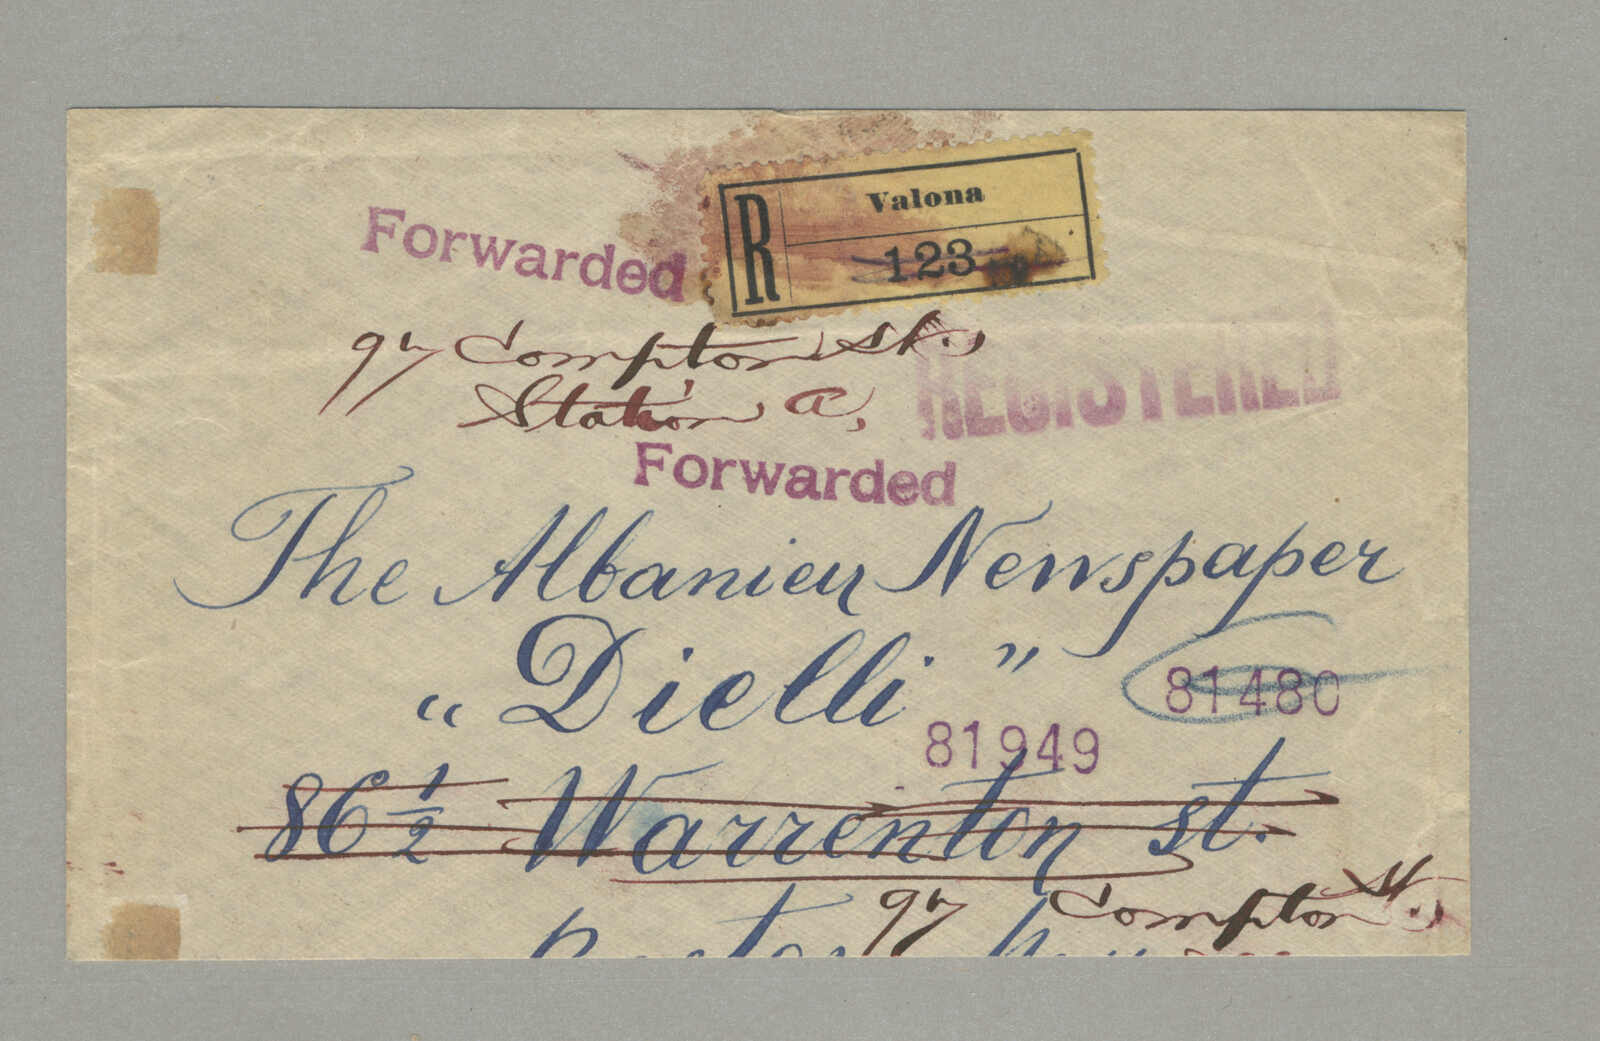 Forwarded
R Valona
123
97 Compton St.,
Station A,
REGISTERED
Forwarded
The Albanien Newspaper
„Dielli”
81480
81949
86 1/2 Warrenton st.
97 Compton St.,
Boston